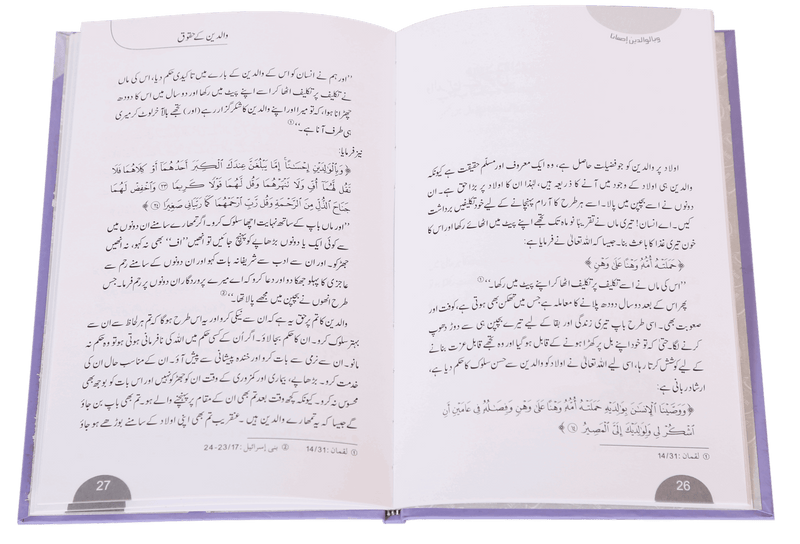 وبالوالدين إحسانا
اولاد پر والدین کو جو فضیلت حاصل ہے، وہ ایک معروف اور مسلّم حقیقت ہے کیونکہ
والدین ہی اولاد کے وجود میں آنے کا ذریعہ ہیں، لہٰذا ان کا اولاد پر بڑا حق ہے۔ ان
دونوں نے اسے بچپن میں پالا۔ اسے ہر طرح کا آرام پہنچانے کے لیے خود تکلیفیں برداشت
کیں۔ اے انسان! تیری ماں نے تقریباً نو ماہ تک تجھے اپنے پیٹ میں اٹھائے رکھا اور اس کا
خون تیری غذا کا باعث بنا۔ جیسا کہ اللہ تعالیٰ نے فرمایا ہے:
﴿حَمَلَتْهُ أُمُّهُ وَهْنًا عَلَىٰ وَهْنٍ﴾
”اس کی ماں نے اسے تکلیف پر تکلیف اٹھا کر اپنے پیٹ میں رکھا۔“①
پھر اس کے بعد دو سال دودھ پلانے کا معاملہ ہے جس میں تھکن بھی ہوتی ہے، کوفت اور
صعوبت بھی۔ اسی طرح باپ تیری زندگی اور بقا کے لیے تیرے بچپن ہی سے دوڑ دھوپ
کرنے لگا حتی کہ تو خود اپنے بل پر کھڑا ہونے کے قابل ہو گیا اور وہ تجھے قابل عزت بنانے
کے لیے کوشش کرتا رہا، اسی لیے اللہ تعالیٰ نے اولاد کو والدین سے حسن سلوک کا حکم دیا ہے،
ارشاد ربانی ہے:
﴿وَوَصَّيْنَا الْإِنسَانَ بِوَالِدَيْهِ حَمَلَتْهُ أُمُّهُ وَهْنًا عَلَىٰ وَهْنٍ وَفِصَالُهُ فِي عَامَيْنِ أَنِ
اشْكُرْ لِي وَلِوَالِدَيْكَ إِلَيَّ الْمَصِيرُ ⑭﴾
① لقمان: 14/31
26
والدین کے حقوق
”اور ہم نے انسان کو اس کے والدین کے بارے میں تاکیدی حکم دیا، اس کی ماں
نے تکلیف پر تکلیف اٹھا کر اسے اپنے پیٹ میں رکھا اور دو سال میں اس کا دودھ
چھڑانا ہوا، کہ تو میرا اور اپنے والدین کا شکر گزار رہے (اور) تجھے بالآخر لوٹ کر میری
ہی طرف آنا ہے۔“①
نیز فرمایا:
﴿وَبِالْوَالِدَيْنِ إِحْسَانًا إِمَّا يَبْلُغَنَّ عِندَكَ الْكِبَرَ أَحَدُهُمَا أَوْ كِلَاهُمَا فَلَا
تَقُل لَّهُمَا أُفٍّ وَلَا تَنْهَرْهُمَا وَقُل لَّهُمَا قَوْلًا كَرِيمًا ㉓ وَاخْفِضْ لَهُمَا
جَنَاحَ الذُّلِّ مِنَ الرَّحْمَةِ وَقُل رَّبِّ ارْحَمْهُمَا كَمَا رَبَّيَانِي صَغِيرًا ㉔﴾
”اور ماں باپ کے ساتھ نہایت اچھا سلوک کرو۔ اگر تمھارے سامنے ان دونوں میں
سے کوئی ایک یا دونوں بڑھاپے کو پہنچ جائیں تو انھیں ”اف“ بھی نہ کہو، نہ انھیں
جھڑکو۔ اور ان سے ادب سے شریفانہ بات کہو اور ان دونوں کے سامنے رحم سے
عاجزی کا پہلو جھکا دو اور دعا کرو کہ اے میرے پروردگار ان دونوں پر رحم فرما۔ جس
طرح انھوں نے بچپن میں مجھے پالا تھا۔“②
والدین کا تم پر حق یہ ہے کہ ان سے نیکی کرو اور یہ اس طرح ہوگا کہ تم ہر لحاظ سے ان سے
بہتر سلوک کرو۔ ان کا حکم بجا لاؤ۔ اگر ان کے کسی حکم میں اللہ کی نافرمانی ہوتی ہو تو وہ حکم نہ
مانو۔ ان سے نرمی سے بات کرو اور خندہ پیشانی سے پیش آؤ۔ ان کے مناسب حال ان کی
خدمت کرو۔ بڑھاپے، بیماری اور کمزوری کے وقت ان کو جھڑکو نہیں اور اس بات کو بوجھ بھی
محسوس نہ کرو۔ کیونکہ کچھ وقت بعد تم بھی ان کے مقام پر پہنچنے والے ہو۔ تم بھی باپ بن جاؤ
گے جیسا کہ یہ تمھارے والدین ہیں۔ عنقریب تم بھی اپنی اولاد کے سامنے بوڑھے ہو جاؤ
① لقمان: 14/31 ② بنی إسرائیل: 24-23/17
27